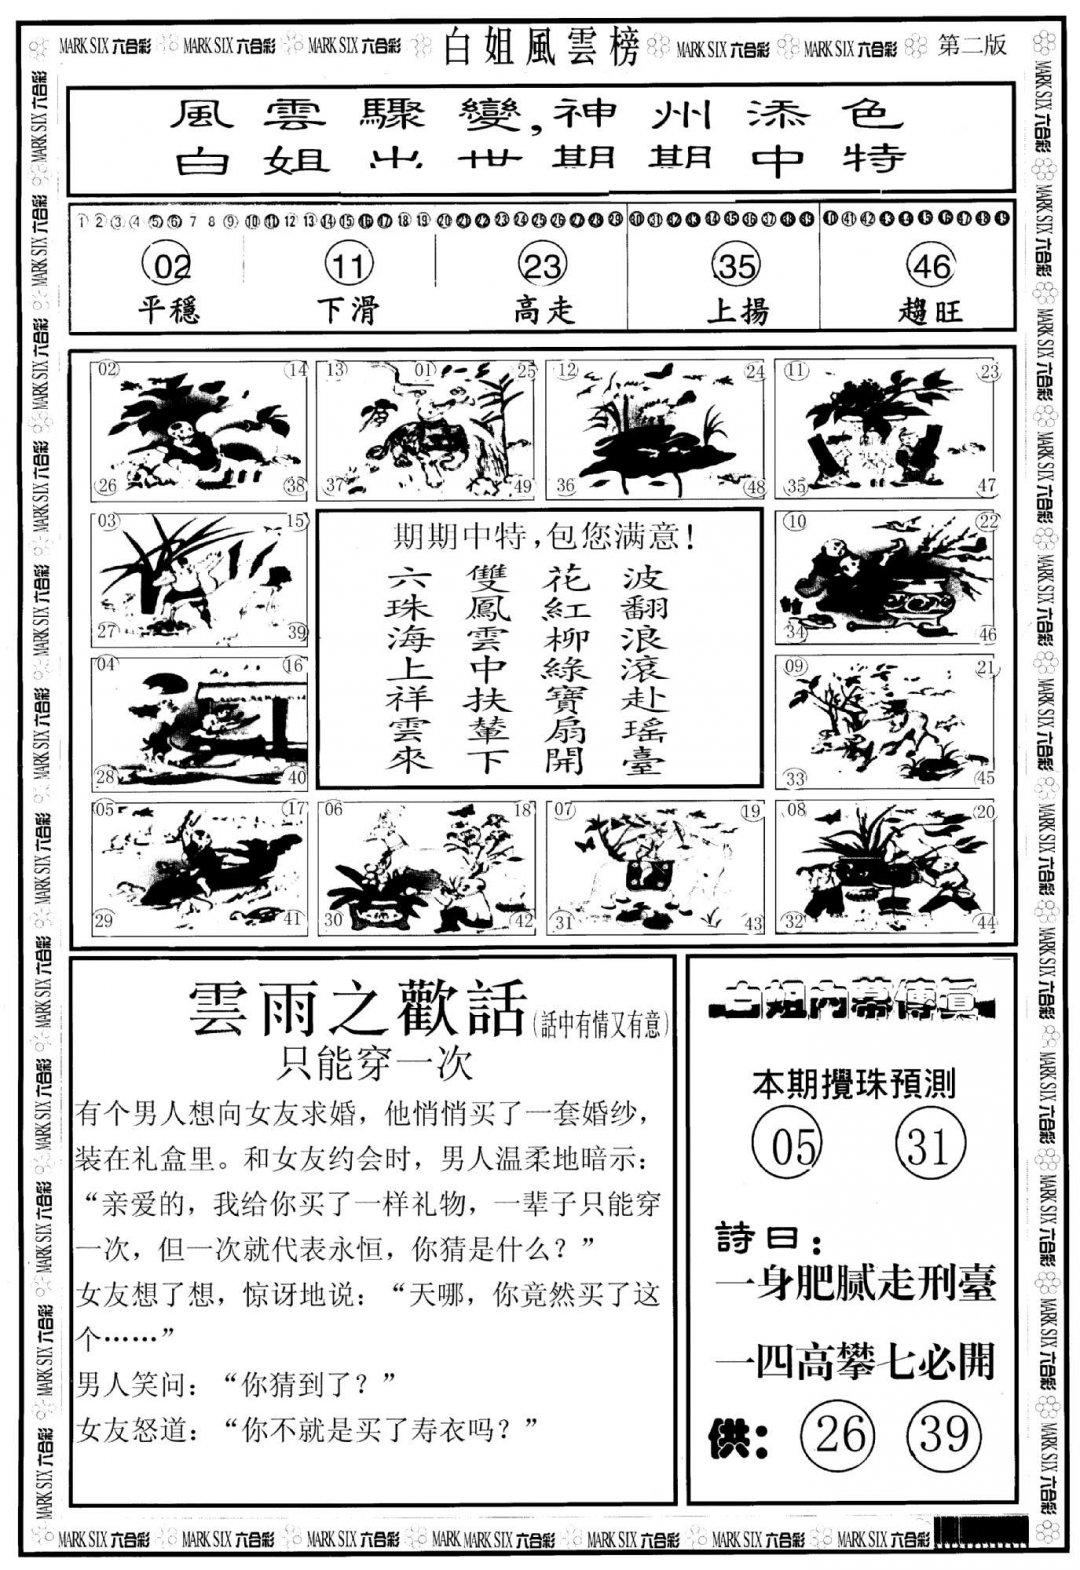 MARK SIX 六合彩 MARK SIX 六合彩 MARK SIX 六合彩 白姐風雲榜 MARK SIX 六合彩 MARK SIX 六合彩 第二版
風雲驟變,神州添色
白姐出世期期中特
1 2 3 4 5 6 7 8 9 10 11 12 13 14 15 16 17 18 19 20 21 22 23 24 25 26 27 28 29 30 31 32 33 34 35 36 37 38 39 40 41 42 43 44 45 46 47 48 49
02 11 23 35 46
平穩 下滑 高走 上揚 趨旺
02 14 13 01 25 12 24 11 23
26 38 37 49 36 48 35 47
03 15
27 39
04 16
28 40
期期中特,包您满意!
波翻浪滾赴瑤臺
花紅柳綠寶扇開
雙鳳雲中扶輦下
六珠海上祥雲來
10 22
34 46
09 21
33 45
05 17 06 18 07 19 08 20
29 41 30 42 31 43 32 44
雲雨之歡話(話中有情又有意)
只能穿一次
有个男人想向女友求婚，他悄悄买了一套婚纱，
装在礼盒里。和女友约会时，男人温柔地暗示：
“亲爱的，我给你买了一样礼物，一辈子只能穿
一次，但一次就代表永恒，你猜是什么？”
女友想了想，惊讶地说：“天哪，你竟然买了这
个……”
男人笑问：“你猜到了？”
女友怒道：“你不就是买了寿衣吗？”
白姐内幕傳真
本期攪珠預測
05 31
詩曰：
一身肥腻走刑臺
一四高攀七必開
供： 26 39
MARK SIX 六合彩 MARK SIX 六合彩 MARK SIX 六合彩 MARK MARK SIX 六合彩 MARK SIX 六合彩 MARK SIX 六合彩 MARK SIX 六合彩